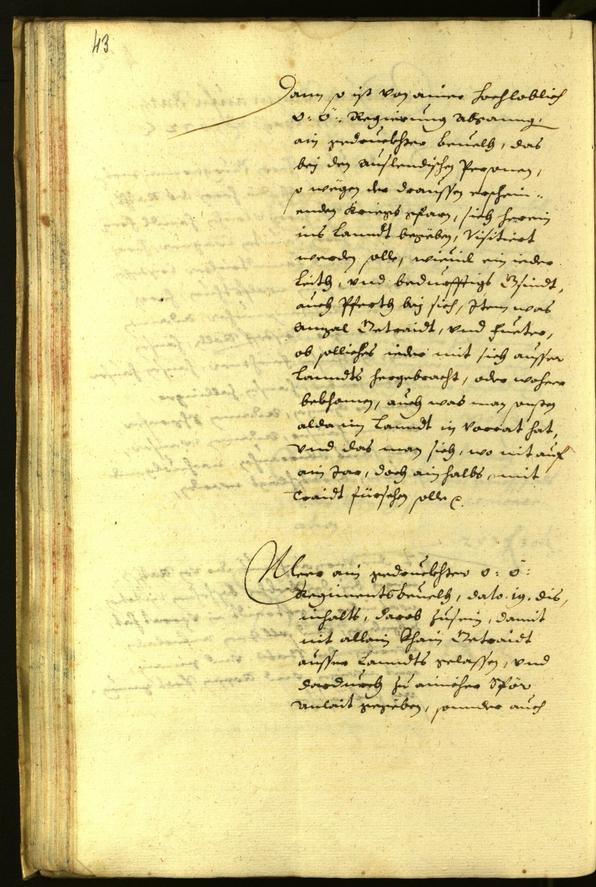 43
Dann so ist von ainer hochloblich
o: ö: Regierung abganng:
ain gedruckhter beuelh, das
bej den auslendischen Personen,
so wegen der draussen erschein..
enden Kriegs gfarn, sich herein
ins Lanndt begeben, Visitiert
werden solle, wieuil ein ieder
Leith, vnd bedürfftigs Gsindt,
auch Pferth bej sich, Item was
anzal Getraidt, vnd Fueter,
ob solliches ieder mit sich ausser
Lanndts hergebracht, oder woheer
bekhomen, auch was man sonsten
alda im Lanndt in Vorrat hat,
vnd das man sich, wo nit auf
ain Jar, doch ain halbs, mit
Traidt fürsehen solle
Meer ain gedruckhter o: ö:
Regiments beuelh, dato. 19. dis,
inhalts, darob zusein, damit
nit allain khain Getraidt
ausser Lanndts gelassen, vnd
dardurch zu ainicher Spör
anlait gegeben, sonnder auch